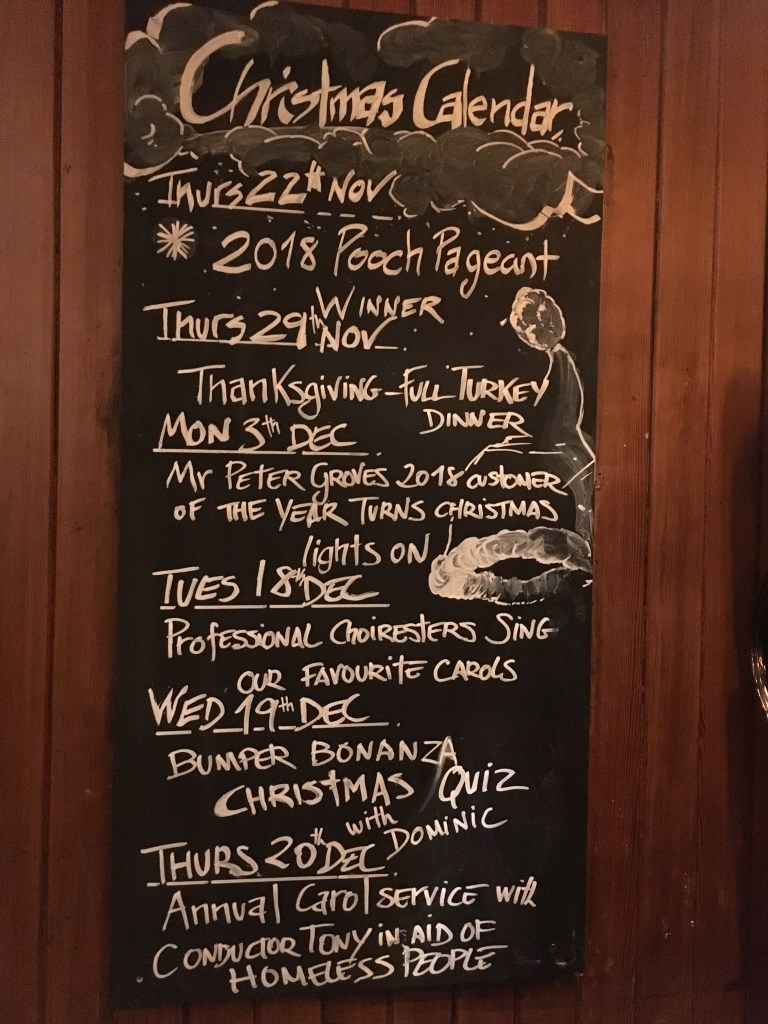 Christmas Calendar
Thurs 22th Nov
2018 Pooch Pageant
Winner
Thurs 29th Nov
Thanksgiving - Full Turkey
Dinner
Mon 3th Dec
Mr Peter Groves 2018 customer
of the Year Turns Christmas
lights on
Tues 18th Dec
Professional Choiresters Sing
our favourite carols
Wed 19th Dec
Bumper Bonanza
Christmas Quiz
with Dominic
Thurs 20th Dec
Annual Carol service with
Conductor Tony in aid of
Homeless People